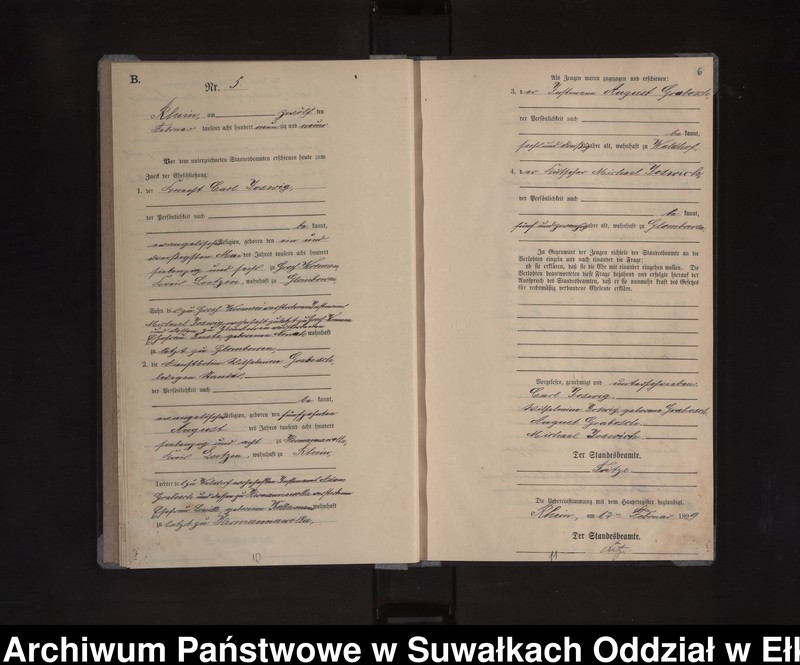 B.
Nr. 5
Rhein, am zwölften
Februar tausend acht hundert neunzig und neun
Vor dem unterzeichneten Standesbeamten erschienen heute zum
Zweck der Eheschließung:
1. der Knecht Carl Joswig,
der Persönlichkeit nach
be kannt,
evangelischer Religion, geboren den ein und
dreißigsten Mai des Jahres tausend acht hundert
siebenzig und sechs zu Groß
Kreis Loetzen, wohnhaft zu Glombowen
Sohn des zu Groß verstorbenen
Michael Joswig
Ehefrau geborenen wohnhaft
zu letzt zu Glombowen,
2. die Dienstbotin Wilhelmine Grabosch,
ledigen Standes,
der Persönlichkeit nach
be kannt,
evangelischer Religion, geboren den fünfzehnten
August des Jahres tausend acht hundert
siebenzig und acht zu Hermannawolla,
Kreis Loetzen, wohnhaft zu Rhein,
Tochter des zu Waldhof wohnhaften Instmanns Adam
Grabosch und dessen zu Hermannawolla verstorbenen
Ehefrau geborenen wohnhaft
zu letzt zu Hermannawolla,
10
6
Als Zeugen waren zugezogen und erschienen:
3. der Instmann August Grabosch,
der Persönlichkeit nach
be kannt,
sechs und dreißig Jahre alt, wohnhaft zu Waldhof,
4. der Michael Joswich,
der Persönlichkeit nach
be kannt,
fünf und zwanzig Jahre alt, wohnhaft zu Glombowen.
In Gegenwart der Zeugen richtete der Standesbeamte an die
Verlobten einzeln und nach einander die Frage:
ob sie erklären, daß sie die Ehe mit einander eingehen wollen. Die
Verlobten beantworteten diese Frage bejahend und erfolgte hierauf der
Ausspruch des Standesbeamten, daß er sie nunmehr kraft des Gesetzes
für rechtmäßig verbundene Eheleute erkläre.
Vorgelesen, genehmigt und unterschrieben
Carl Joswig
Wilhelmine Joswig geborene Grabosch
August Grabosch
Michael Joswich
Der Standesbeamte.
Fritze
Die Uebereinstimmung mit dem Hauptregister beglaubigt.
Rhein, am 12ten Februar 1899
Der Standesbeamte.
11
Archiwum Państwowe w Suwałkach Oddział w Eł